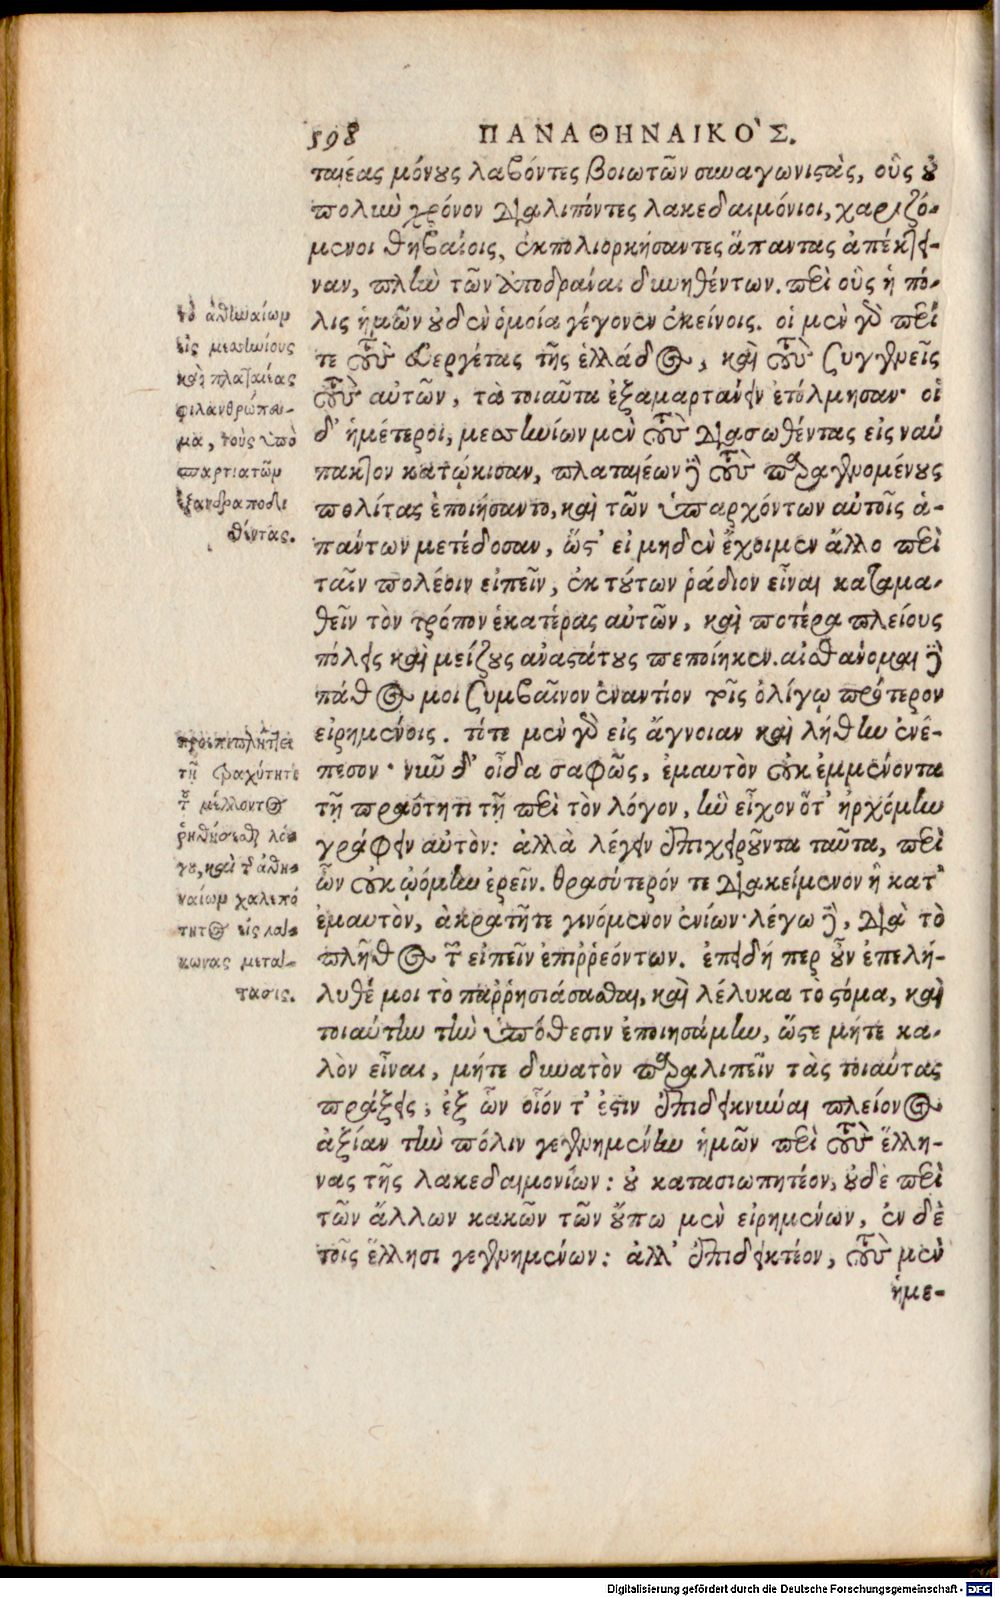 598 ΠΑΝΑΘΗΝΑΙΚΟ'Σ.
ταιέας μόνους λαβόντες βοιωτῶν συναγωνιστὰς, οὓς οὐ
πολιὺ χρόνον διαλιπόντες λακεδαιμόνιοι, χαριζό-
μενοι θηβαίοις, ἐκπολιορκήσαντες ἅπαντας ἀπέκτει-
ναν, πλὴν τῶν ἀποδρᾶναι δυνηθέντων. περὶ οὓς ἡ πό-
λις ἡμῶν οὐδὲν ὁμοία γέγονεν ἐκείνοις. οἱ μὲν γὰρ περί
τε τοὺς εὐεργέτας τῆς ἑλλάδος, καὶ τοὺς συγγενεῖς
τοὺς αὐτῶν, τὰ τοιαῦτα ἐξαμαρτάνειν ἐτόλμησαν· οἱ
δ' ἡμέτεροι, μεσσηνίων μὲν τοὺς διασωθέντας εἰς ναύ
πακτον κατῴκισαν, πλαταιέων δὲ τοὺς παραγενομένους
πολίτας ἐποιήσαντο, καὶ τῶν ὑπαρχόντων αὐτοῖς ἁ-
πάντων μετέδοσαν, ὥστ' εἰ μηδὲν ἔχοιμεν ἄλλο περὶ
ταῖν πολέοιν εἰπεῖν, ἐκ τούτων ῥάδιον εἶναι καταμα-
θεῖν τὸν τρόπον ἑκατέρας αὐτῶν, καὶ ποτέρα πλείους
πόλεις καὶ μείζους ἀναστάτους πεποίηκεν. αἰσθάνομαι δὲ
πάθος μοι συμβαῖνον ἐναντίον τοῖς ὀλίγῳ πρότερον
εἰρημένοις. τότε μὲν γὰρ εἰς ἄγνοιαν καὶ λήθην ἐνέ-
πεσον· νῦν δ' οἶδα σαφῶς, ἐμαυτὸν οὐκ ἐμμένοντα
τῇ πραότητι τῇ περὶ τὸν λόγον, ἣν εἶχον ὅτ' ἠρχόμην
γράφειν αὐτὸν: ἀλλὰ λέγειν ἐπιχειροῦντα ταῦτα, περὶ
ὧν οὐκ ᾠόμην ἐρεῖν. θρασύτερόν τε διακείμενον ἢ κατ'
ἐμαυτὸν, ἀκρατῆτε γινόμενον ἐνίων· λέγω δὲ, διὰ τὸ
πλῆθος τῶν εἰπεῖν ἐπιῤῥεόντων. ἐπειδή περ οὖν ἐπελή-
λυθέ μοι τὸ παῤῥησιάσασθαι, καὶ λέλυκα τὸ στόμα, καὶ
τοιαύτην τὴν ὑπόθεσιν ἐποιησάμην, ὥστε μήτε κα-
λὸν εἶναι, μήτε δυνατὸν παραλιπεῖν τὰς τοιαύτας
πράξεις, ἐξ ὧν οἷόν τ' ἐστιν ἐπιδεικνύναι πλείονος
ἀξίαν τὴν πόλιν γεγενημένην ἡμῶν περὶ τοὺς ἕλλη-
νας τῆς λακεδαιμονίων: οὐ κατασιωπητέον, οὐδὲ περὶ
τῶν ἄλλων κακῶν τῶν οὔπω μὲν εἰρημένων, ἐν δὲ
τοῖς ἕλλησι γεγενημένων: ἀλλ' ἐπιδεικτέον, τοὺς μὲν
ἡμε-
τὸ ἀθηναίων
εἰς μεσσηνίους
καὶ πλαταιέας
φιλανθρώπευ-
μα, τοὺς ὑπὸ
σπαρτιατῶν
ἐξανδραποδι
θέντας.
προεπιπλήττει
τῇ τραχύτητι
τοῦ μέλλοντος
ῥηθήσεσθαι λό-
γου, καὶ τῶν ἀθη-
ναίων χαλεπό
τητος εἰς λα-
κωνας μετα-
τασις.
Digitalisierung gefördert durch die Deutsche Forschungsgemeinschaft - DFG